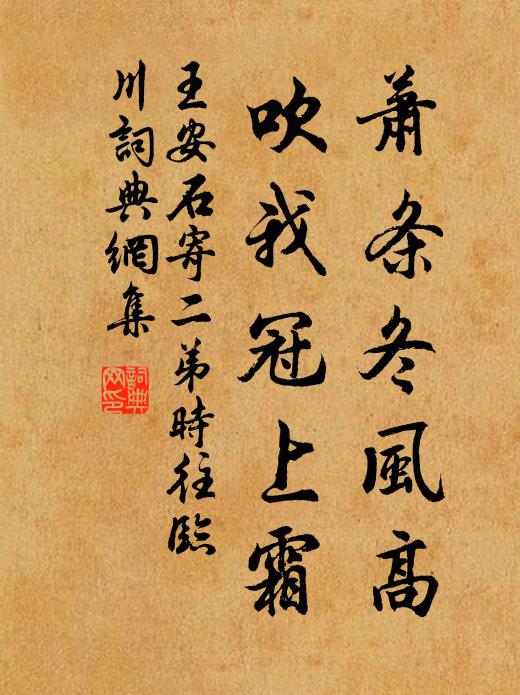 蕭条冬風高
吹我冠上霜
王安石寄二弟時往臨
川詞典網集
詞典
网印